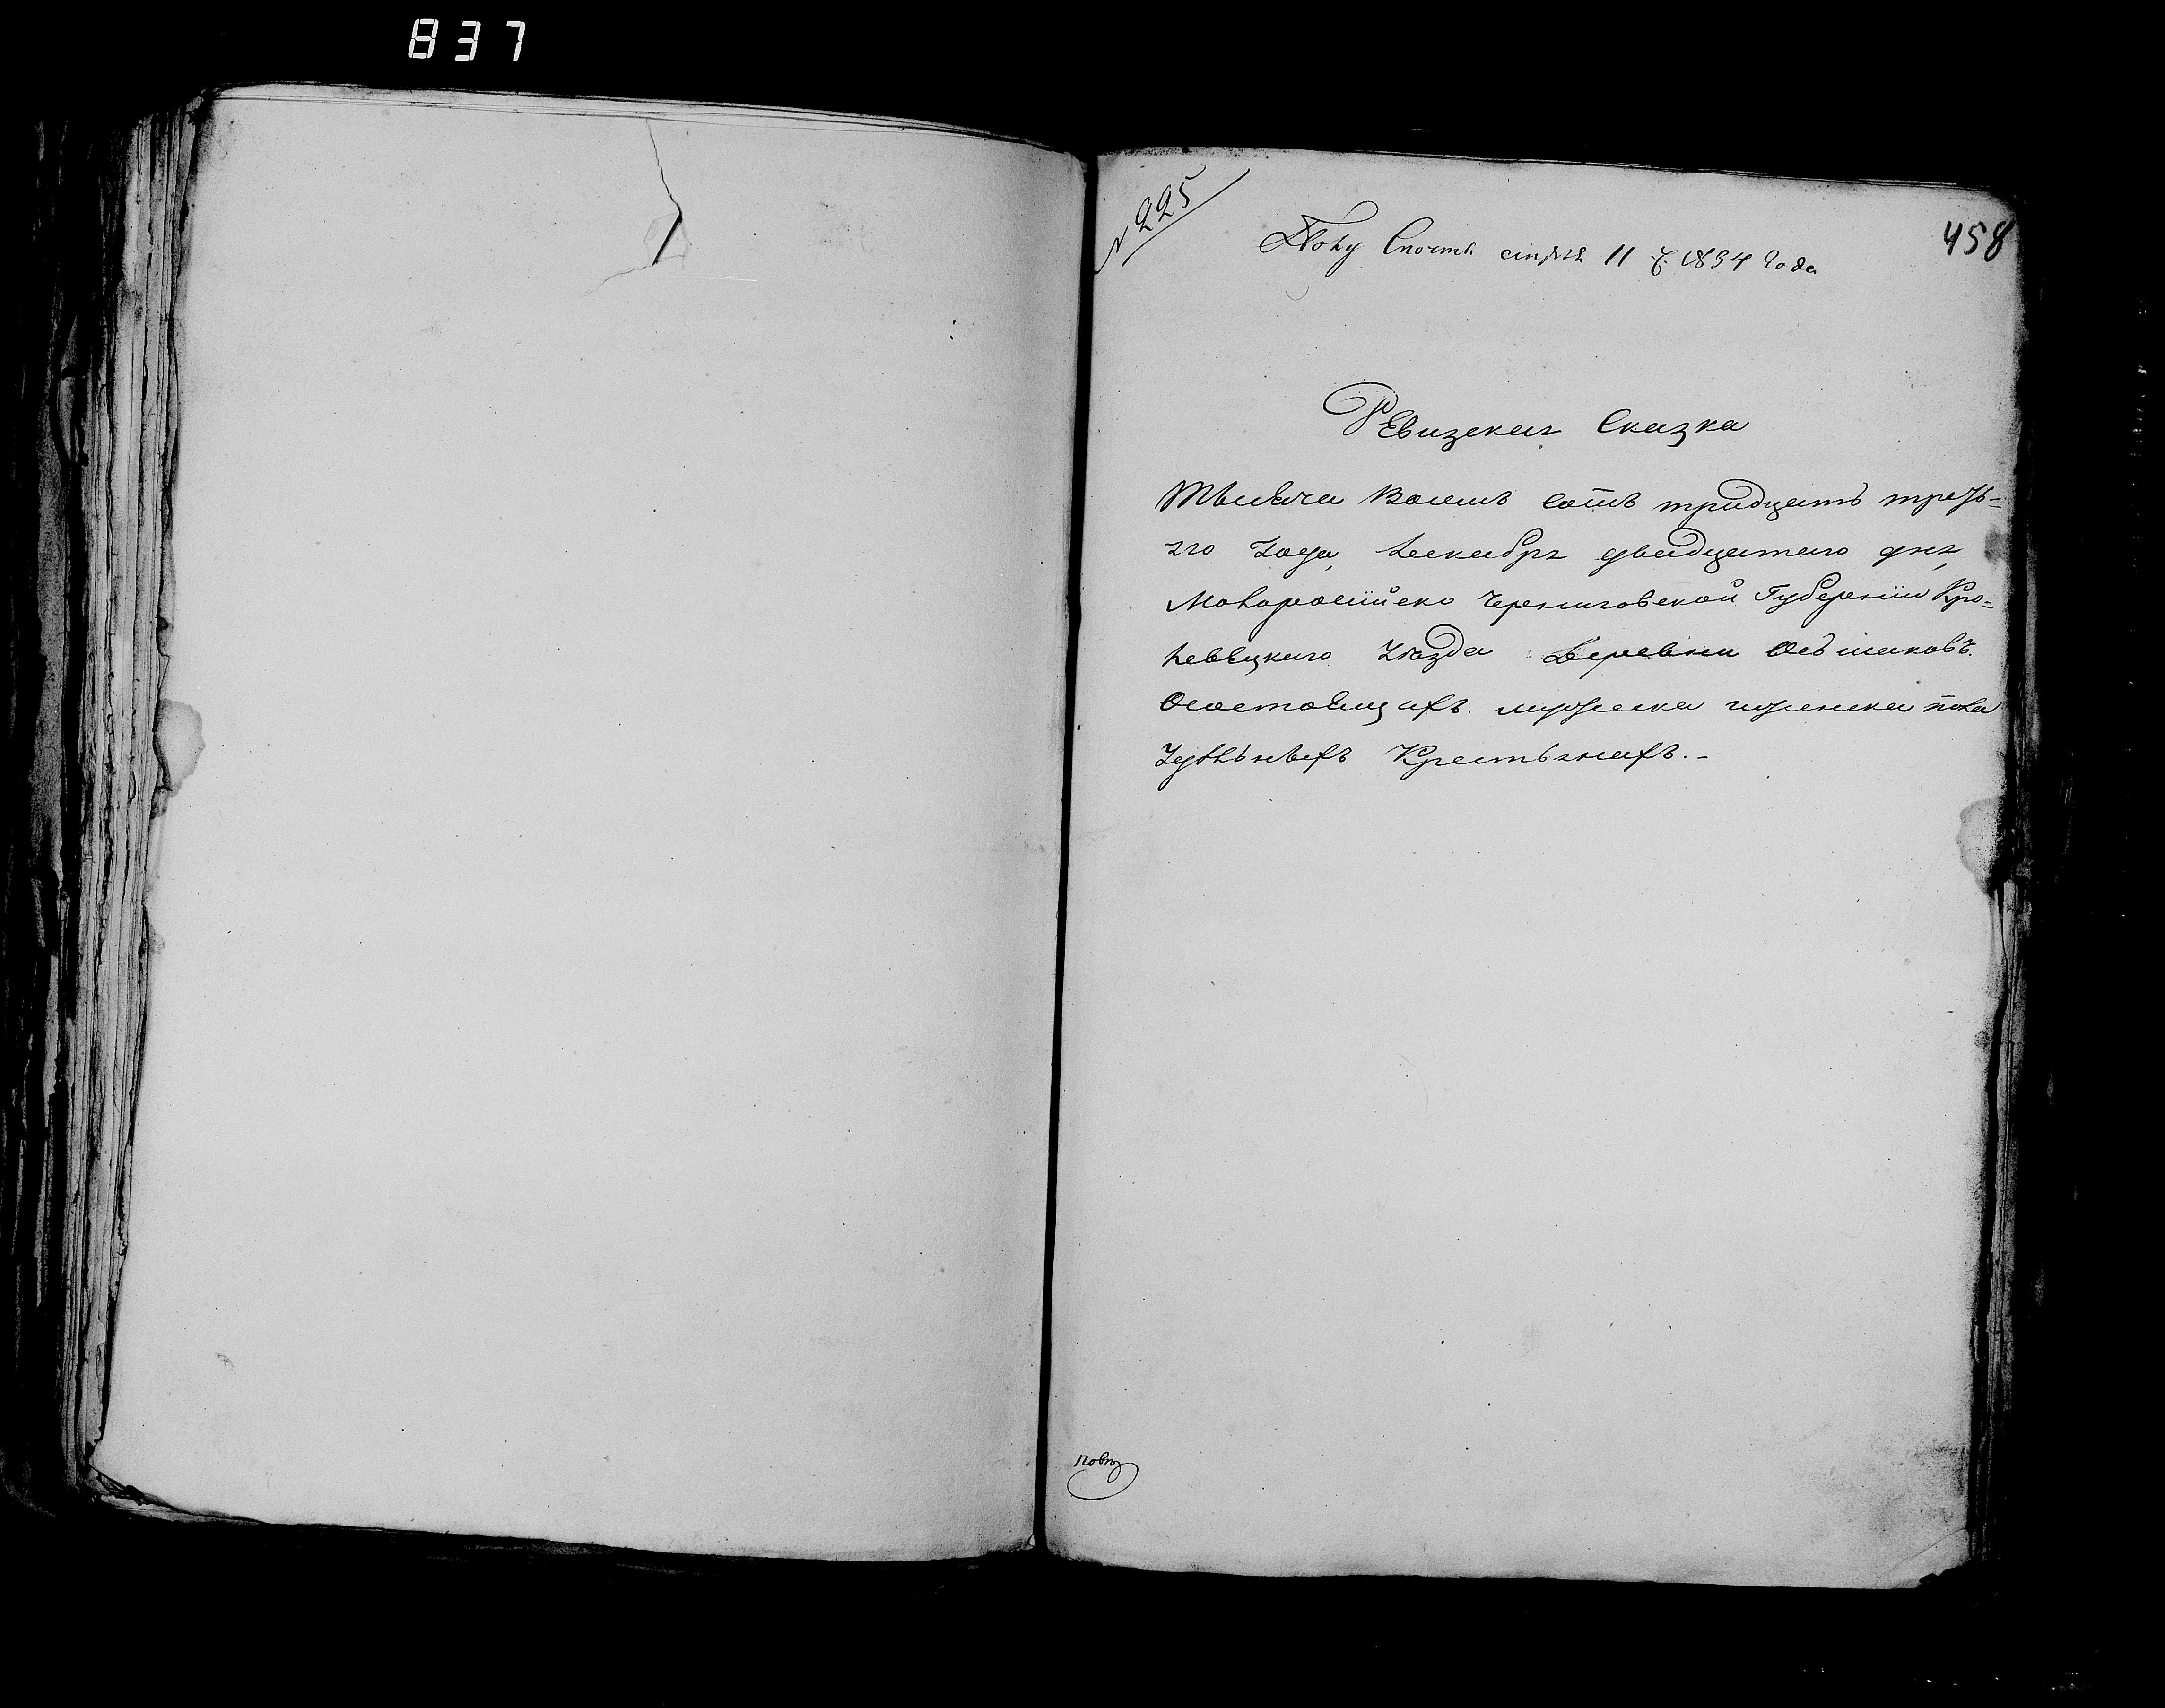 837
N 225
458
Полу Спочты апреля 11 ч. 1834 года
Ревизская Сказка
Тысяча Восемъ сотъ тридцать треть=
яго Года, декабря двадцатаго дня,
Молоросийско Черниговской Губернии Кро=
левецкаго Уезда Деревни
О состоящихъ мужеска иженска пола
Крестьянахъ.-